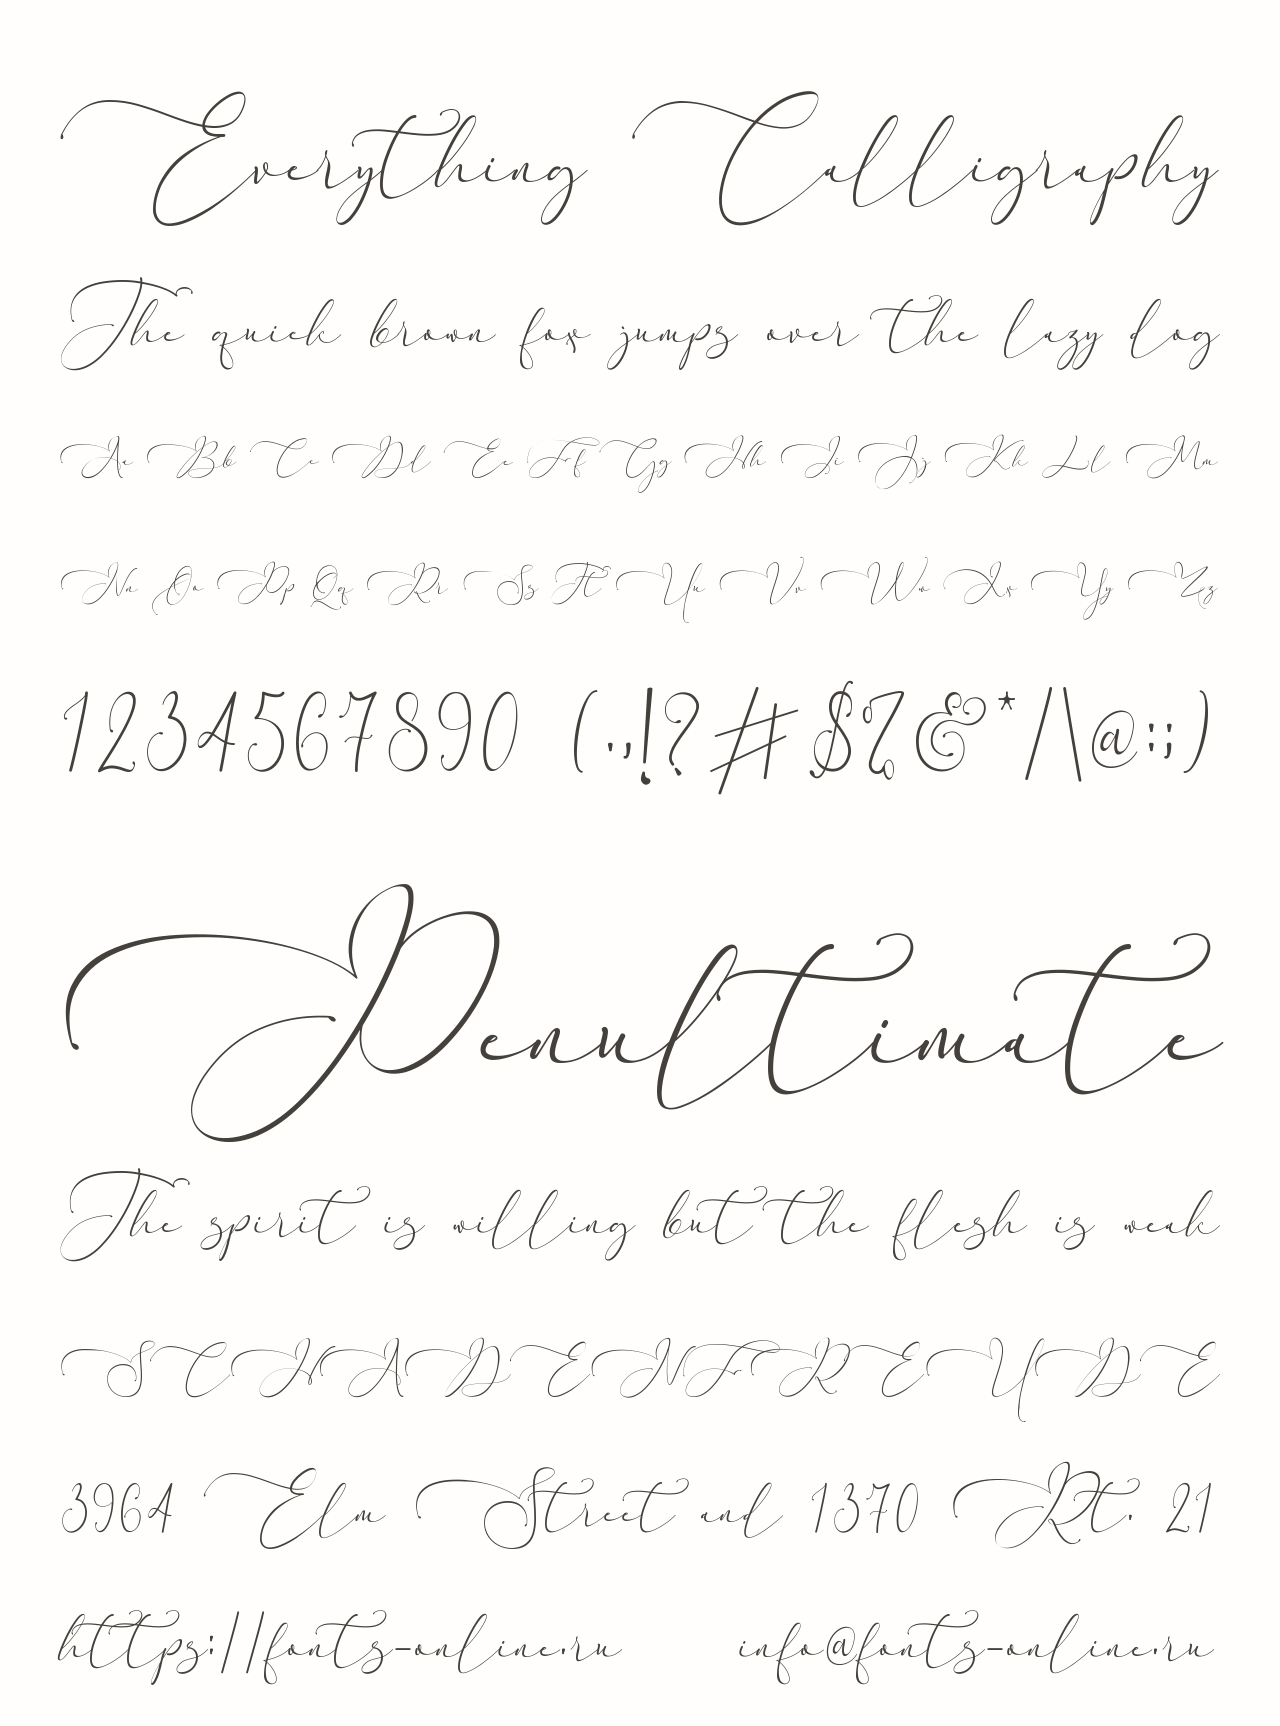 Everything Calligraphy
The quick brown fox jumps over the lazy dog
Aa Bb Cc Dd Ee Ff Gg Hh Ii Jj Kk Ll Mm
Nn Oo Pp Qq Rr Ss Tt Uu Vv Ww Xx Yy Zz
1234567890 (.,!?#$%&*/\@:;)
Penultimate
The spirit is willing but the flesh is weak
SCHADENFREUDE
3964 Elm Street and 1370 Rt. 21
https://fonts-online.ru info@fonts-online.ru